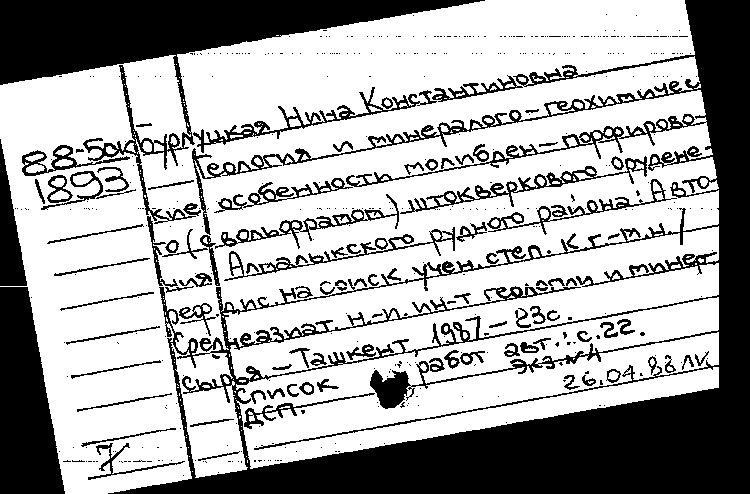 88-5ок Бурлуцкая, Нина Константиновна
1893
Геология и минералого-геохимичес
кие особенности молибден-порфирово-
го (с вольфрамом) штокверкового орудене-
ния Алмалыкского рудного района: Авто-
реф. дис. на соиск. учен. степ. к г.-м.н. /
Среднеазиат. н.-и. ин-т геологии и минер.
сырья. - Ташкент, 1987. - 23с.
Список работ авт.: с.22.
ДСП. Экз.N4
26.04.88 ЛК
7